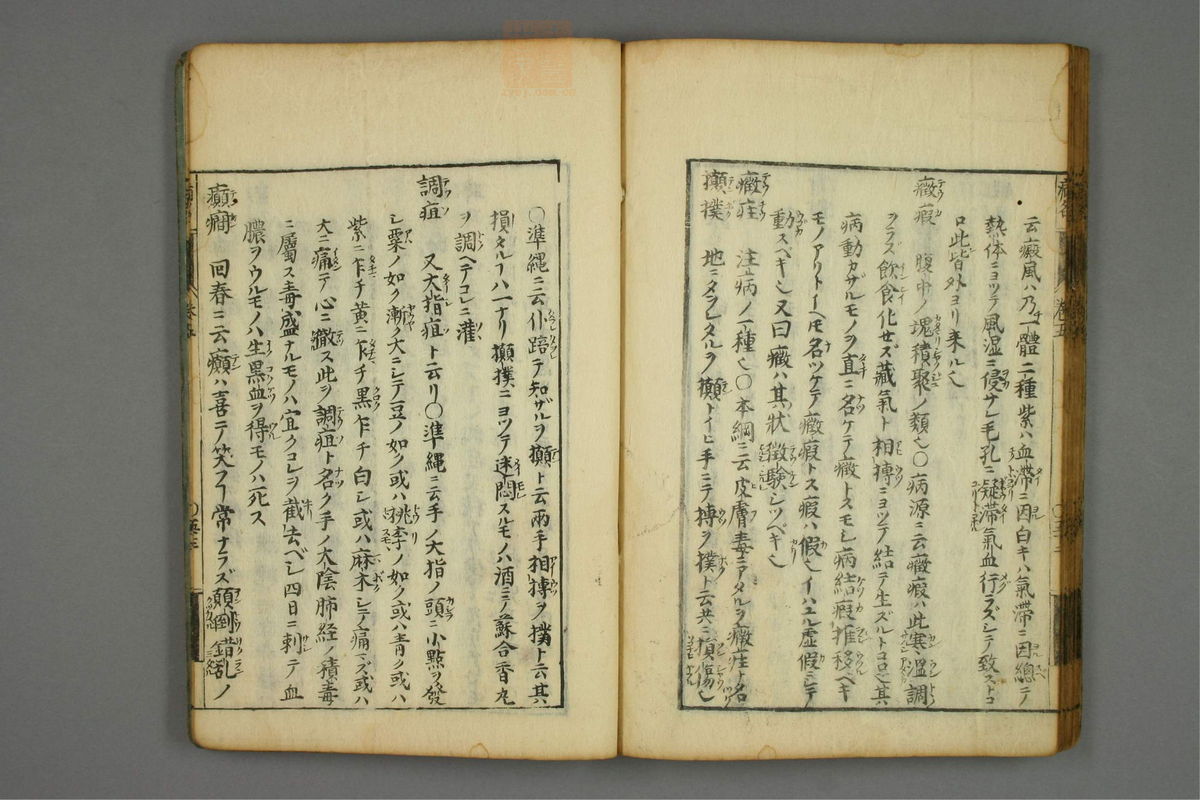 云癜風ハ乃チ一體二種紫ハ血滯ニ因白キハ氣滯ニ因總テ
熱体ニヨツテ風湿ニ侵サレ毛孔ニ凝滯氣血行ラズシテ致ストコ
ロ此皆外ヨリ来ル也
癥瘕 腹中ノ塊積聚ノ類也〇病源ニ云癥瘕ハ此寒温調
ヲラズ飲食化セズ藏氣ト相搏ニヨツテ結テ生ズルトコロ其
病動カザルモノヲ直ニ名ケテ癥トスモシ病結瘕推移ベキ
モノアリトイヘモ名ツケテ癥瘕トス瘕ハ假也イハユル虚假ニシテ
動スベキ也又曰癥ハ其ノ狀徴驗シツベキ也
癥疰 注病ノ一種也〇本綱ニ云皮膚毒ニアタルヲ癥疰ト名
攧撲 地ニタヲレタルヲ攧トイヒ手ニテ搏ヲ撲ト云共ニ損傷也
〇準縄ニ云仆踣テ知ザルヲ攧ト云兩手相搏ヲ撲ト云其
損タルフハ一ナリ攧撲ニヨツテ迷悶スルモノハ酒ニテ蘇合香丸
ヲ調ヘテコレニ灌
調疽 又大指疽ト云リ〇準縄ニ云手ノ大指ノ頭ニ小點ヲ發
シ粟ノ如ク漸ク大ニシテ豆ノ如ク或ハ桃李ノ如ク或ハ青ク或ハ
紫ニ乍チ黄ニ乍チ黒乍チ白シ或ハ麻木シテ痛マズ或ハ
大ニ痛テ心ニ徹ス此ヲ調疽ト名ク手ノ太陰肺経ノ積毒
ニ屬ス毒盛ナルモノハ宜クコレヲ截去ベシ四日ニ刺テ血
膿ヲウルモノハ生黒血ヲ得モノハ死ス
癲癇 回春ニ云癲ハ喜テ笑フ常ナラズ顛倒錯乱ノ